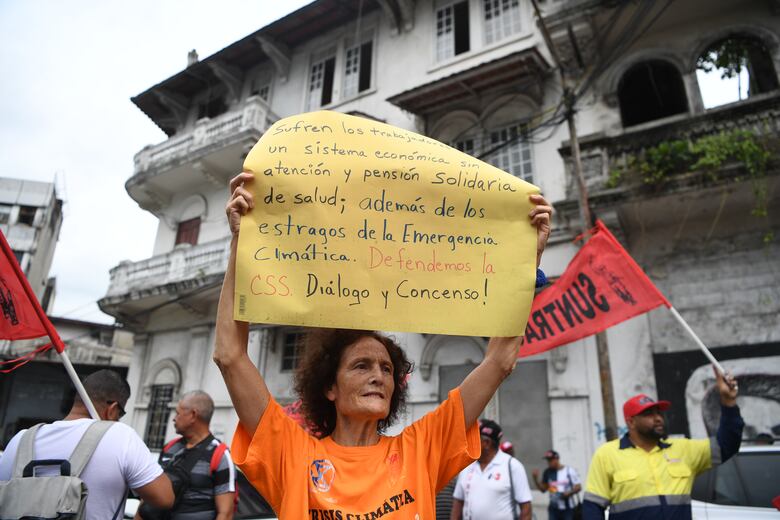 Sufren los trabajadores
un sistema económica sin
atención y pensión Solidaria
de salud; además de los
estragos de la Emergencia
Climática. Defendemos la
CSS. Diálogo y Concenso!
SUNTRA
CRISIS CLIMÁTIA